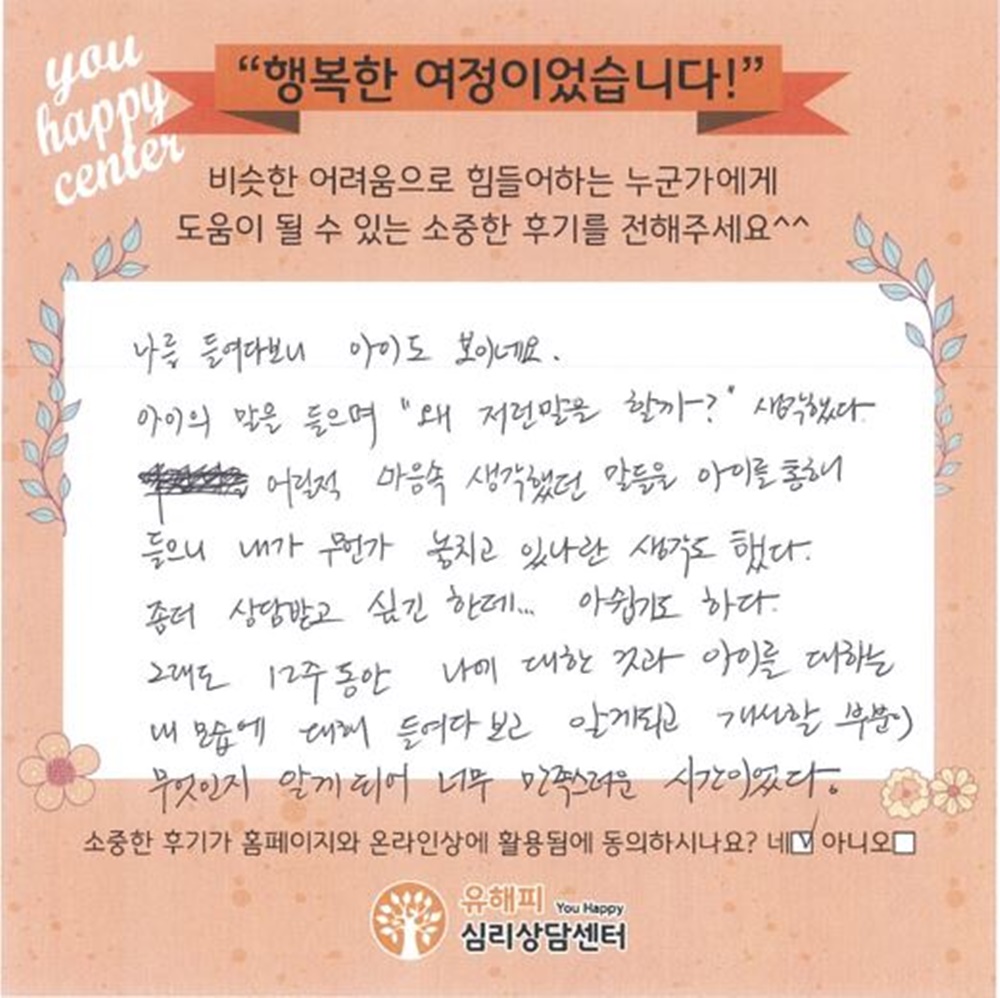 you
happy
center
“행복한 여정이었습니다!”
비슷한 어려움으로 힘들어하는 누군가에게
도움이 될 수 있는 소중한 후기를 전해주세요^^
나를 들여다보니 아이도 보이네요.
아이의 말을 들으며 "왜 저런말을 할까?" 생각했다.
어릴적 마음속 생각했던 말들을 아이를 통해
들으니 내가 무언가 놓치고 있나란 생각도 했다.
좀더 상담받고 싶긴 한데... 아쉽기도 하다.
그래도 12주 동안 나에 대한 것과 아이를 대하는
내 모습에 대해 들여다 보고 알게되고 개선할 부분이
무엇인지 알게 되어 너무 만족스러운 시간이었다.
소중한 후기가 홈페이지와 온라인상에 활용됨에 동의하시나요? 네☑ 아니오☐
유해피 You Happy
심리상담센터